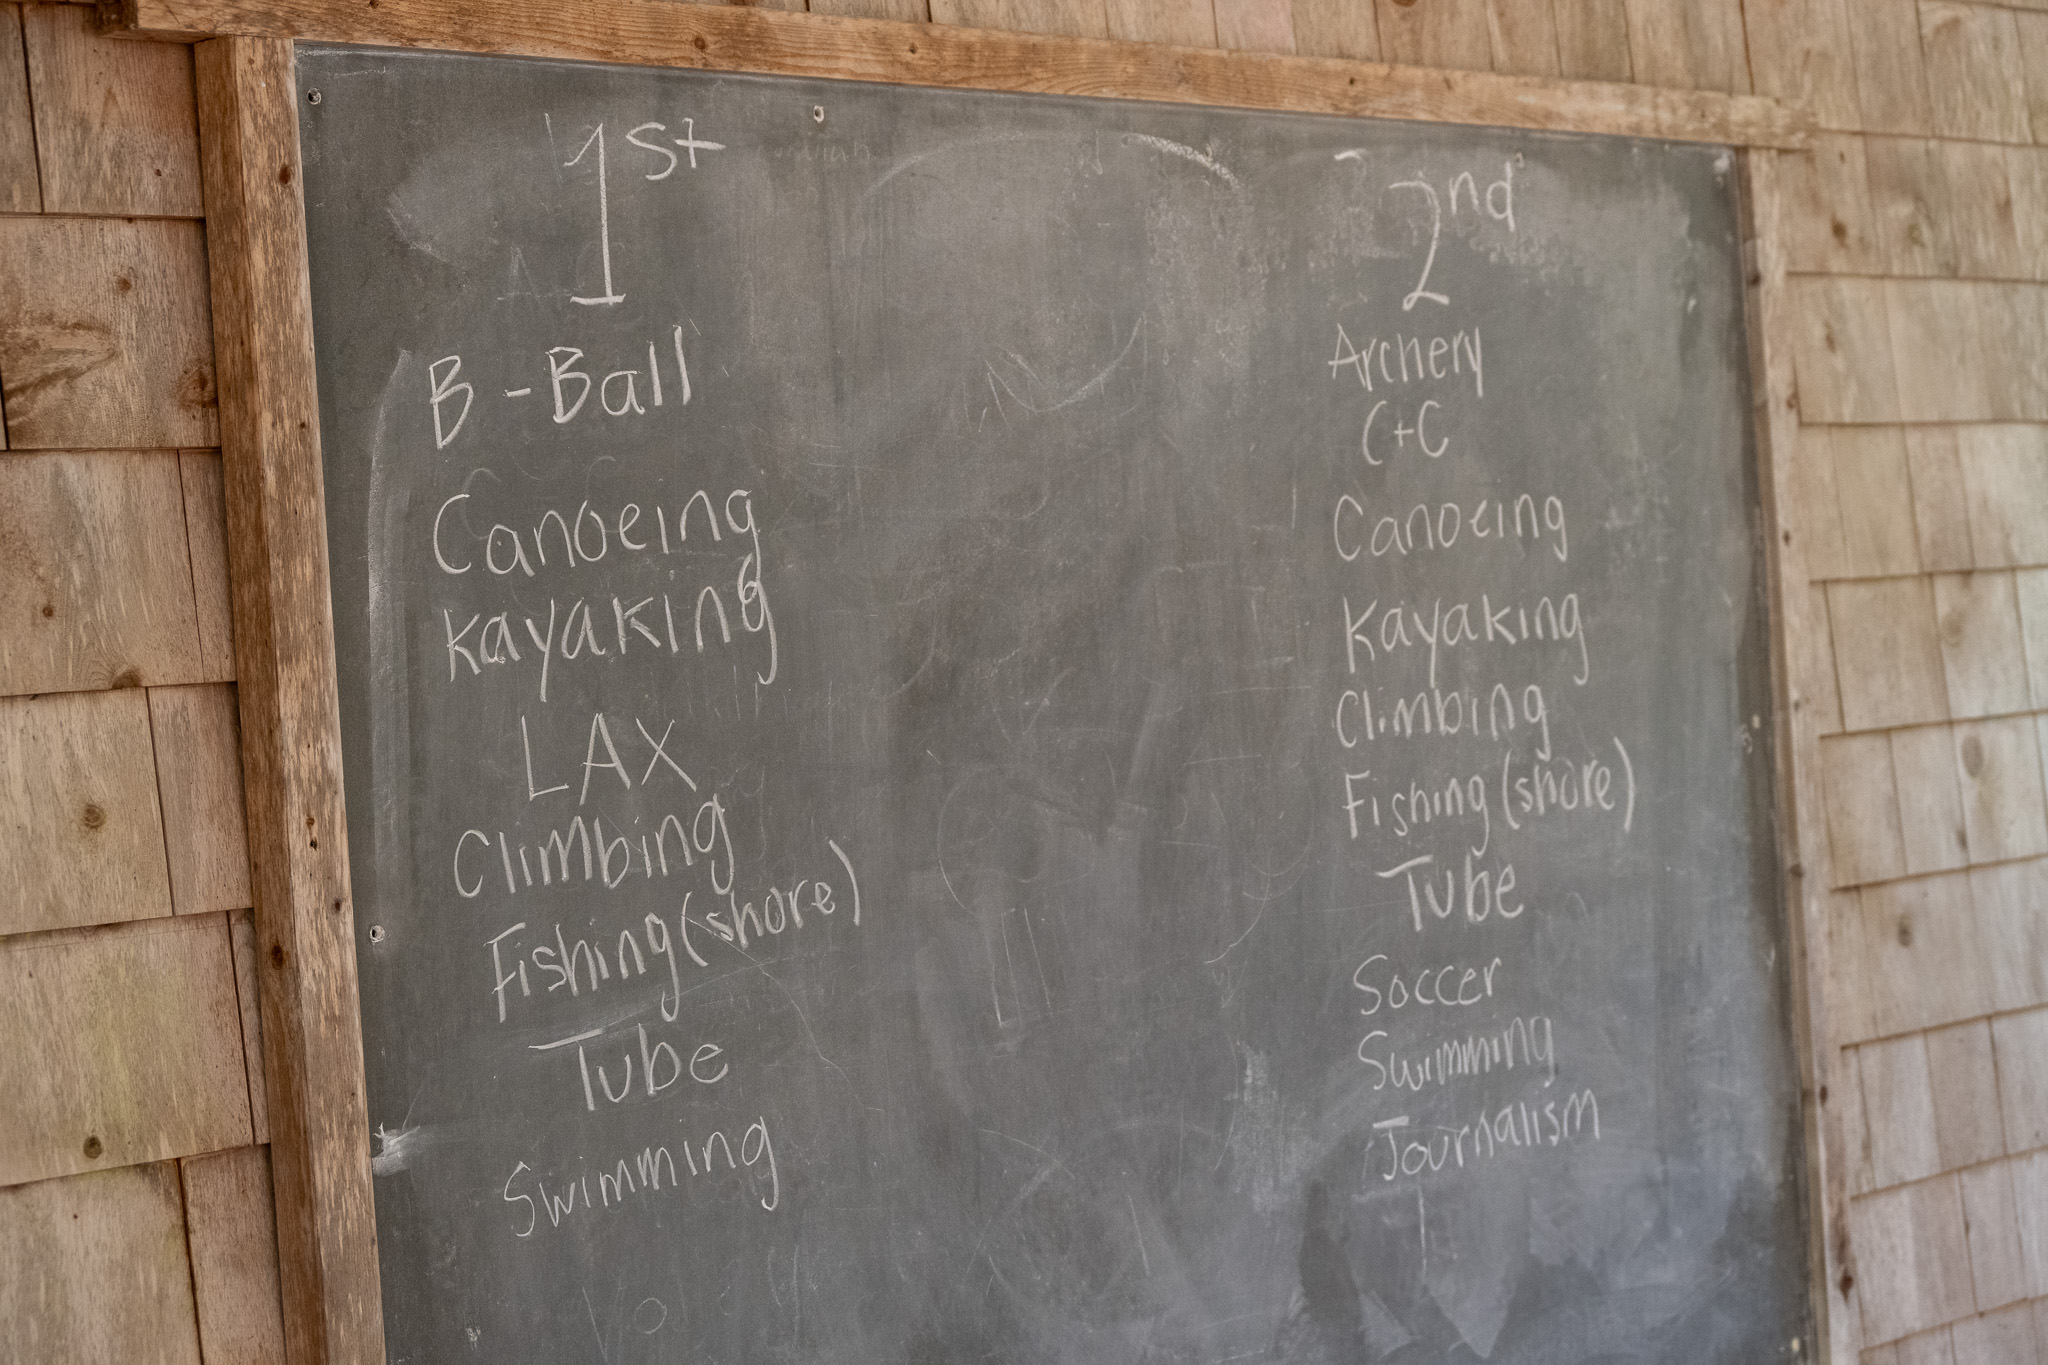 1st
B-Ball
Canoeing
Kayaking
LAX
Climbing
Fishing (shore)
Tube
Swimming
2nd
Archery
C+C
Canoeing
Kayaking
Climbing
Fishing (shore)
Tube
Soccer
Swimming
Journalism